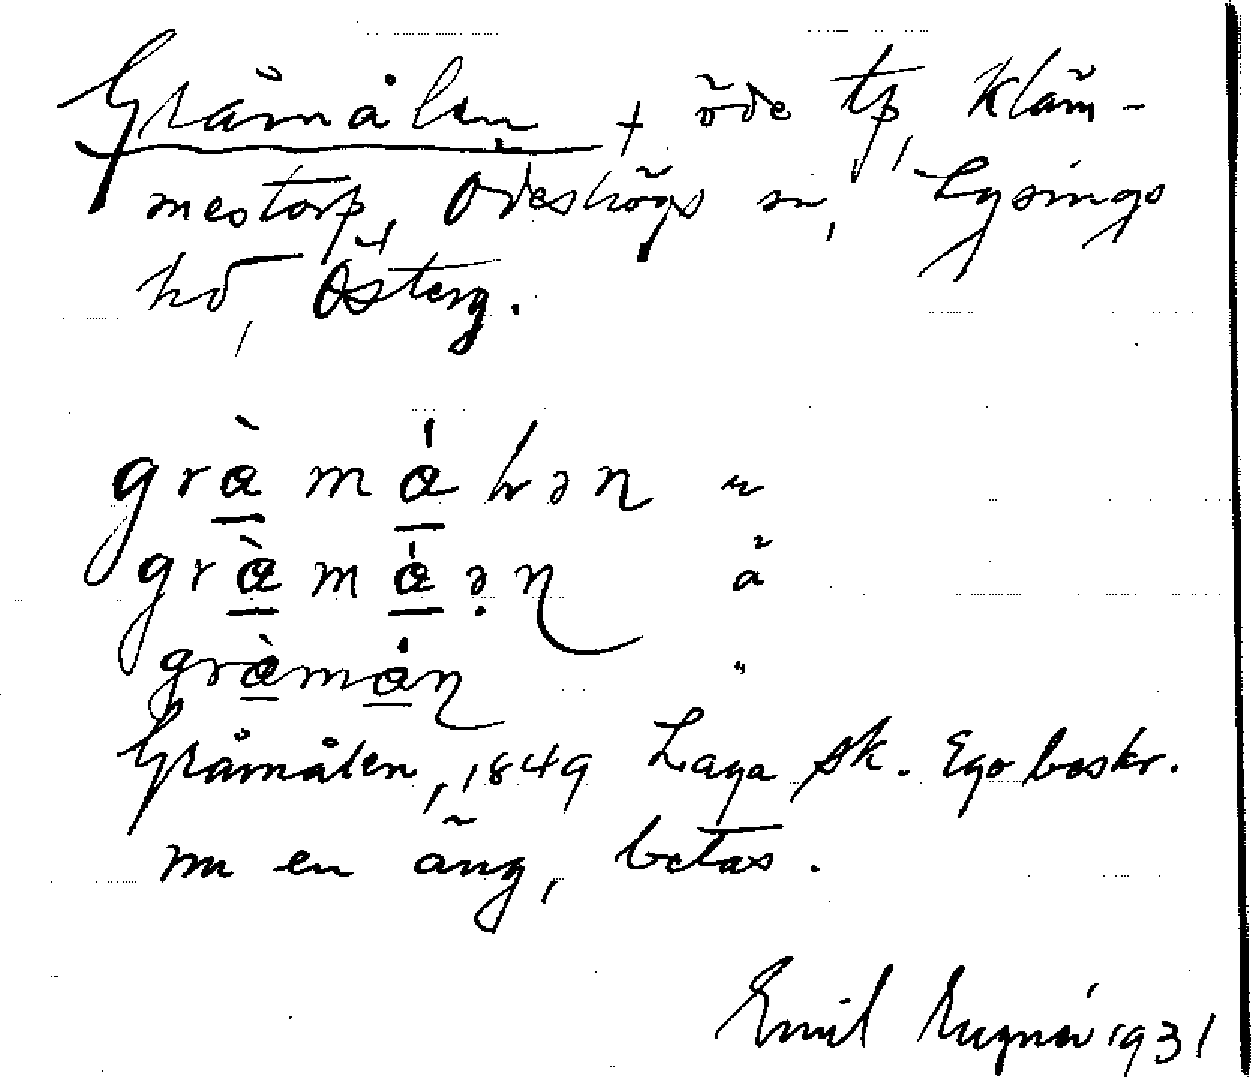 Gråmålen + öde tp, Kläm-
mestorp, Ödeshögs sn, Lysings
hd, Österg.
gràmálən "
gràmáən ä
gràmán "
Gråmålen, 1849 Laga sk. Ego beskr.
nu en äng, betas.
Emil 1931